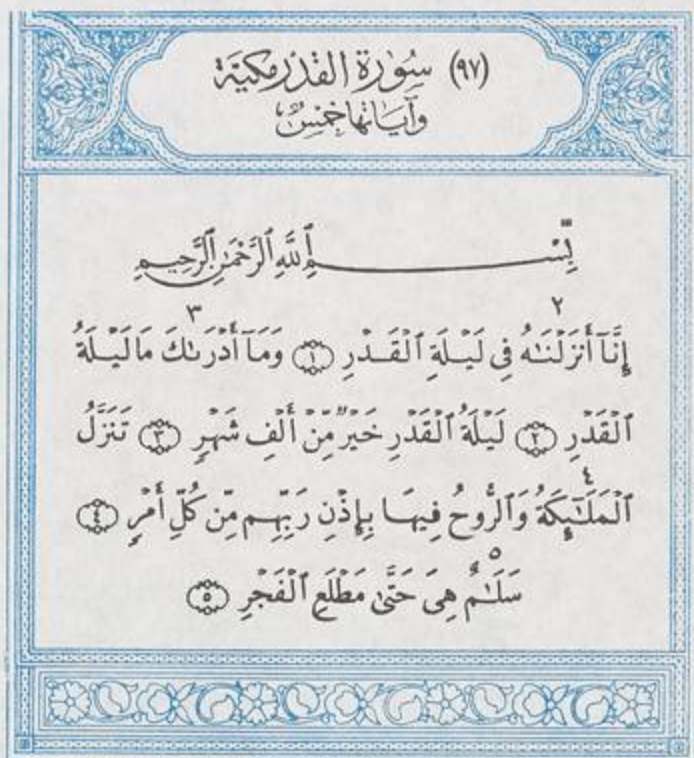 (٩٧) سُورَة القَدْرِ مكيَّة
وَآيَاتها خَمْسٌ
بِّسۡـــــــــمِ ٱللَّهِ ٱلرَّحۡمَٰنِ ٱلرَّحِيمِ
٢ ٣
إِنَّآ أَنزَلۡنَٰهُ فِى لَيۡلَةِ ٱلۡقَدۡرِ ١ وَمَآ أَدۡرَىٰكَ مَا لَيۡلَةُ
ٱلۡقَدۡرِ ٢ لَيۡلَةُ ٱلۡقَدۡرِ خَيۡرٌ مِّنۡ أَلۡفِ شَهۡرٍ ٣ تَنَزَّلُ
٤
ٱلۡمَلَٰٓئِكَةُ وَٱلرُّوحُ فِيهَا بِإِذۡنِ رَبِّهِم مِّن كُلِّ أَمۡرٍ ٤
٥
سَلَٰمٌ هِىَ حَتَّىٰ مَطۡلَعِ ٱلۡفَجۡرِ ٥